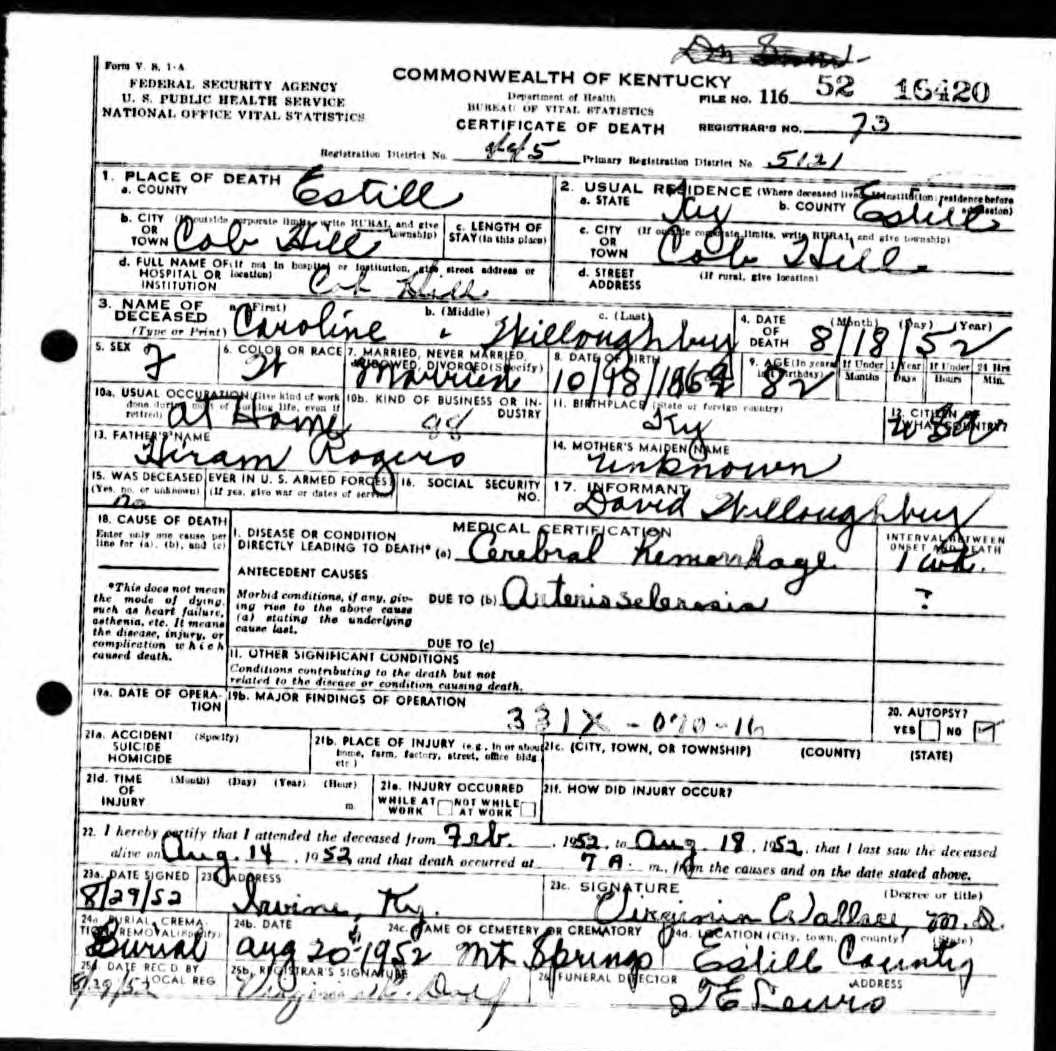 Form V. S. 1-A
FEDERAL SECURITY AGENCY
U. S. PUBLIC HEALTH SERVICE
NATIONAL OFFICE VITAL STATISTICS
COMMONWEALTH OF KENTUCKY
Department of Health
BUREAU OF VITAL STATISTICS
CERTIFICATE OF DEATH
FILE NO. 116 52 16420
REGISTRAR'S NO. 73
Registration District No. 445 Primary Registration District No. 5121
1. PLACE OF DEATH
a. COUNTY Estill
2. USUAL RESIDENCE (Where deceased lived. If institution: residence before admission)
a. STATE Ky b. COUNTY Estill
b. CITY (If outside corporate limits, write RURAL and give township)
OR
TOWN Cob Hill
c. LENGTH OF
STAY (in this place)
c. CITY (If outside corporate limits, write RURAL and give township)
OR
TOWN Cob Hill.
d. FULL NAME OF (If not in hospital or institution, give street address or location)
HOSPITAL OR
INSTITUTION Cob Hill
d. STREET (If rural, give location)
ADDRESS
3. NAME OF DECEASED
(Type or Print)
a. (First) b. (Middle) c. (Last)
Caroline Willoughby
4. DATE OF DEATH (Month) (Day) (Year)
8/18/52
5. SEX F
6. COLOR OR RACE W
7. MARRIED, NEVER MARRIED, WIDOWED, DIVORCED (Specify)
Married
8. DATE OF BIRTH
9. AGE (In years last birthday) 82
If Under 1 Year Months Days
If Under 24 Hrs Hours Min.
10a. USUAL OCCUPATION (Give kind of work done during most of working life, even if retired)
at Home
10b. KIND OF BUSINESS OR INDUSTRY
11. BIRTHPLACE (State or foreign country)
Ky
12. CITIZEN OF WHAT COUNTRY?
13. FATHER'S NAME
Hiram Rogers
14. MOTHER'S MAIDEN NAME
Unknown
15. WAS DECEASED EVER IN U. S. ARMED FORCES?
(Yes, no, or unknown) (If yes, give war or dates of service)
no
16. SOCIAL SECURITY NO.
17. INFORMANT
David Willoughby
18. CAUSE OF DEATH
Enter only one cause per line for (a), (b), and (c)
MEDICAL CERTIFICATION
INTERVAL BETWEEN ONSET AND DEATH
I. DISEASE OR CONDITION
DIRECTLY LEADING TO DEATH* (a) Cerebral hemorrhage 1 wk.
*This does not mean
the mode of dying,
such as heart failure,
asthenia, etc. It means
the disease, injury, or
complication which
caused death.
ANTECEDENT CAUSES
Morbid conditions, if any, giving rise to the above cause (a) stating the underlying cause last.
DUE TO (b) Arteriosclerosis ?
DUE TO (c)
11. OTHER SIGNIFICANT CONDITIONS
Conditions contributing to the death but not
related to the disease or condition causing death.
19a. DATE OF OPERATION
19b. MAJOR FINDINGS OF OPERATION
331X - 070 - 16
20. AUTOPSY?
YES NO
21a. ACCIDENT (Specify)
SUICIDE
HOMICIDE
21b. PLACE OF INJURY (e.g., in or about home, farm, factory, street, office bldg etc.)
21c. (CITY, TOWN, OR TOWNSHIP) (COUNTY) (STATE)
21d. TIME OF INJURY (Month) (Day) (Year) (Hour) m
21e. INJURY OCCURRED
WHILE AT WORK NOT WHILE AT WORK
21f. HOW DID INJURY OCCUR?
22. I hereby certify that I attended the deceased from Feb. , 1952, to Aug. 18, 1952, that I last saw the deceased
alive on Aug. 14, 1952 and that death occurred at 7 A. m., from the causes and on the date stated above.
23a. DATE SIGNED
8/29/52
23b. ADDRESS
Irvine, Ky.
23c. SIGNATURE (Degree or title)
Virginia Wallace, M.D.
24a. BURIAL, CREMATION, REMOVAL (Specify)
Burial
24b. DATE
Aug 20 - 1952
24c. NAME OF CEMETERY OR CREMATORY
Mt Springs
24d. LOCATION (City, town, or county) (State)
Estill County
25a. DATE REC'D BY LOCAL REG
8/29/52
25b. REGISTRAR'S SIGNATURE
26. FUNERAL DIRECTOR ADDRESS
Lewis